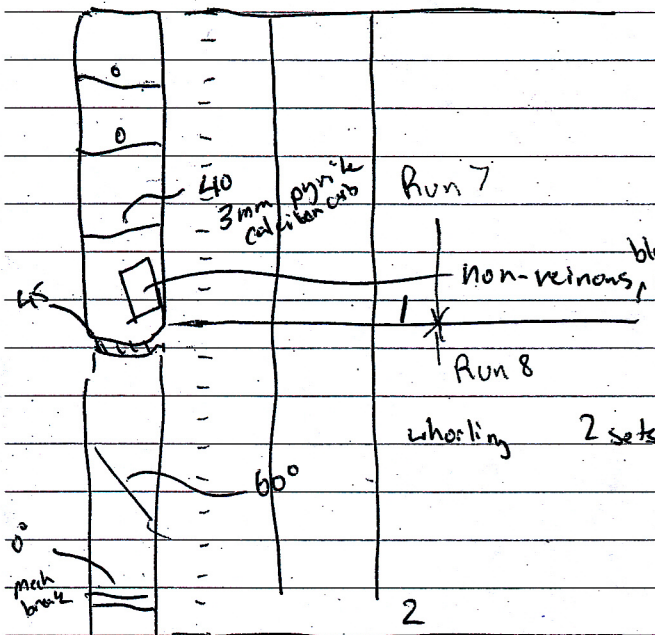 0
0
40
3mm pyrite
calcium carb
Run 7
non-veinous, bl
45
1
Run 8
whorling 2 sets
60°
0°
mech
break
2